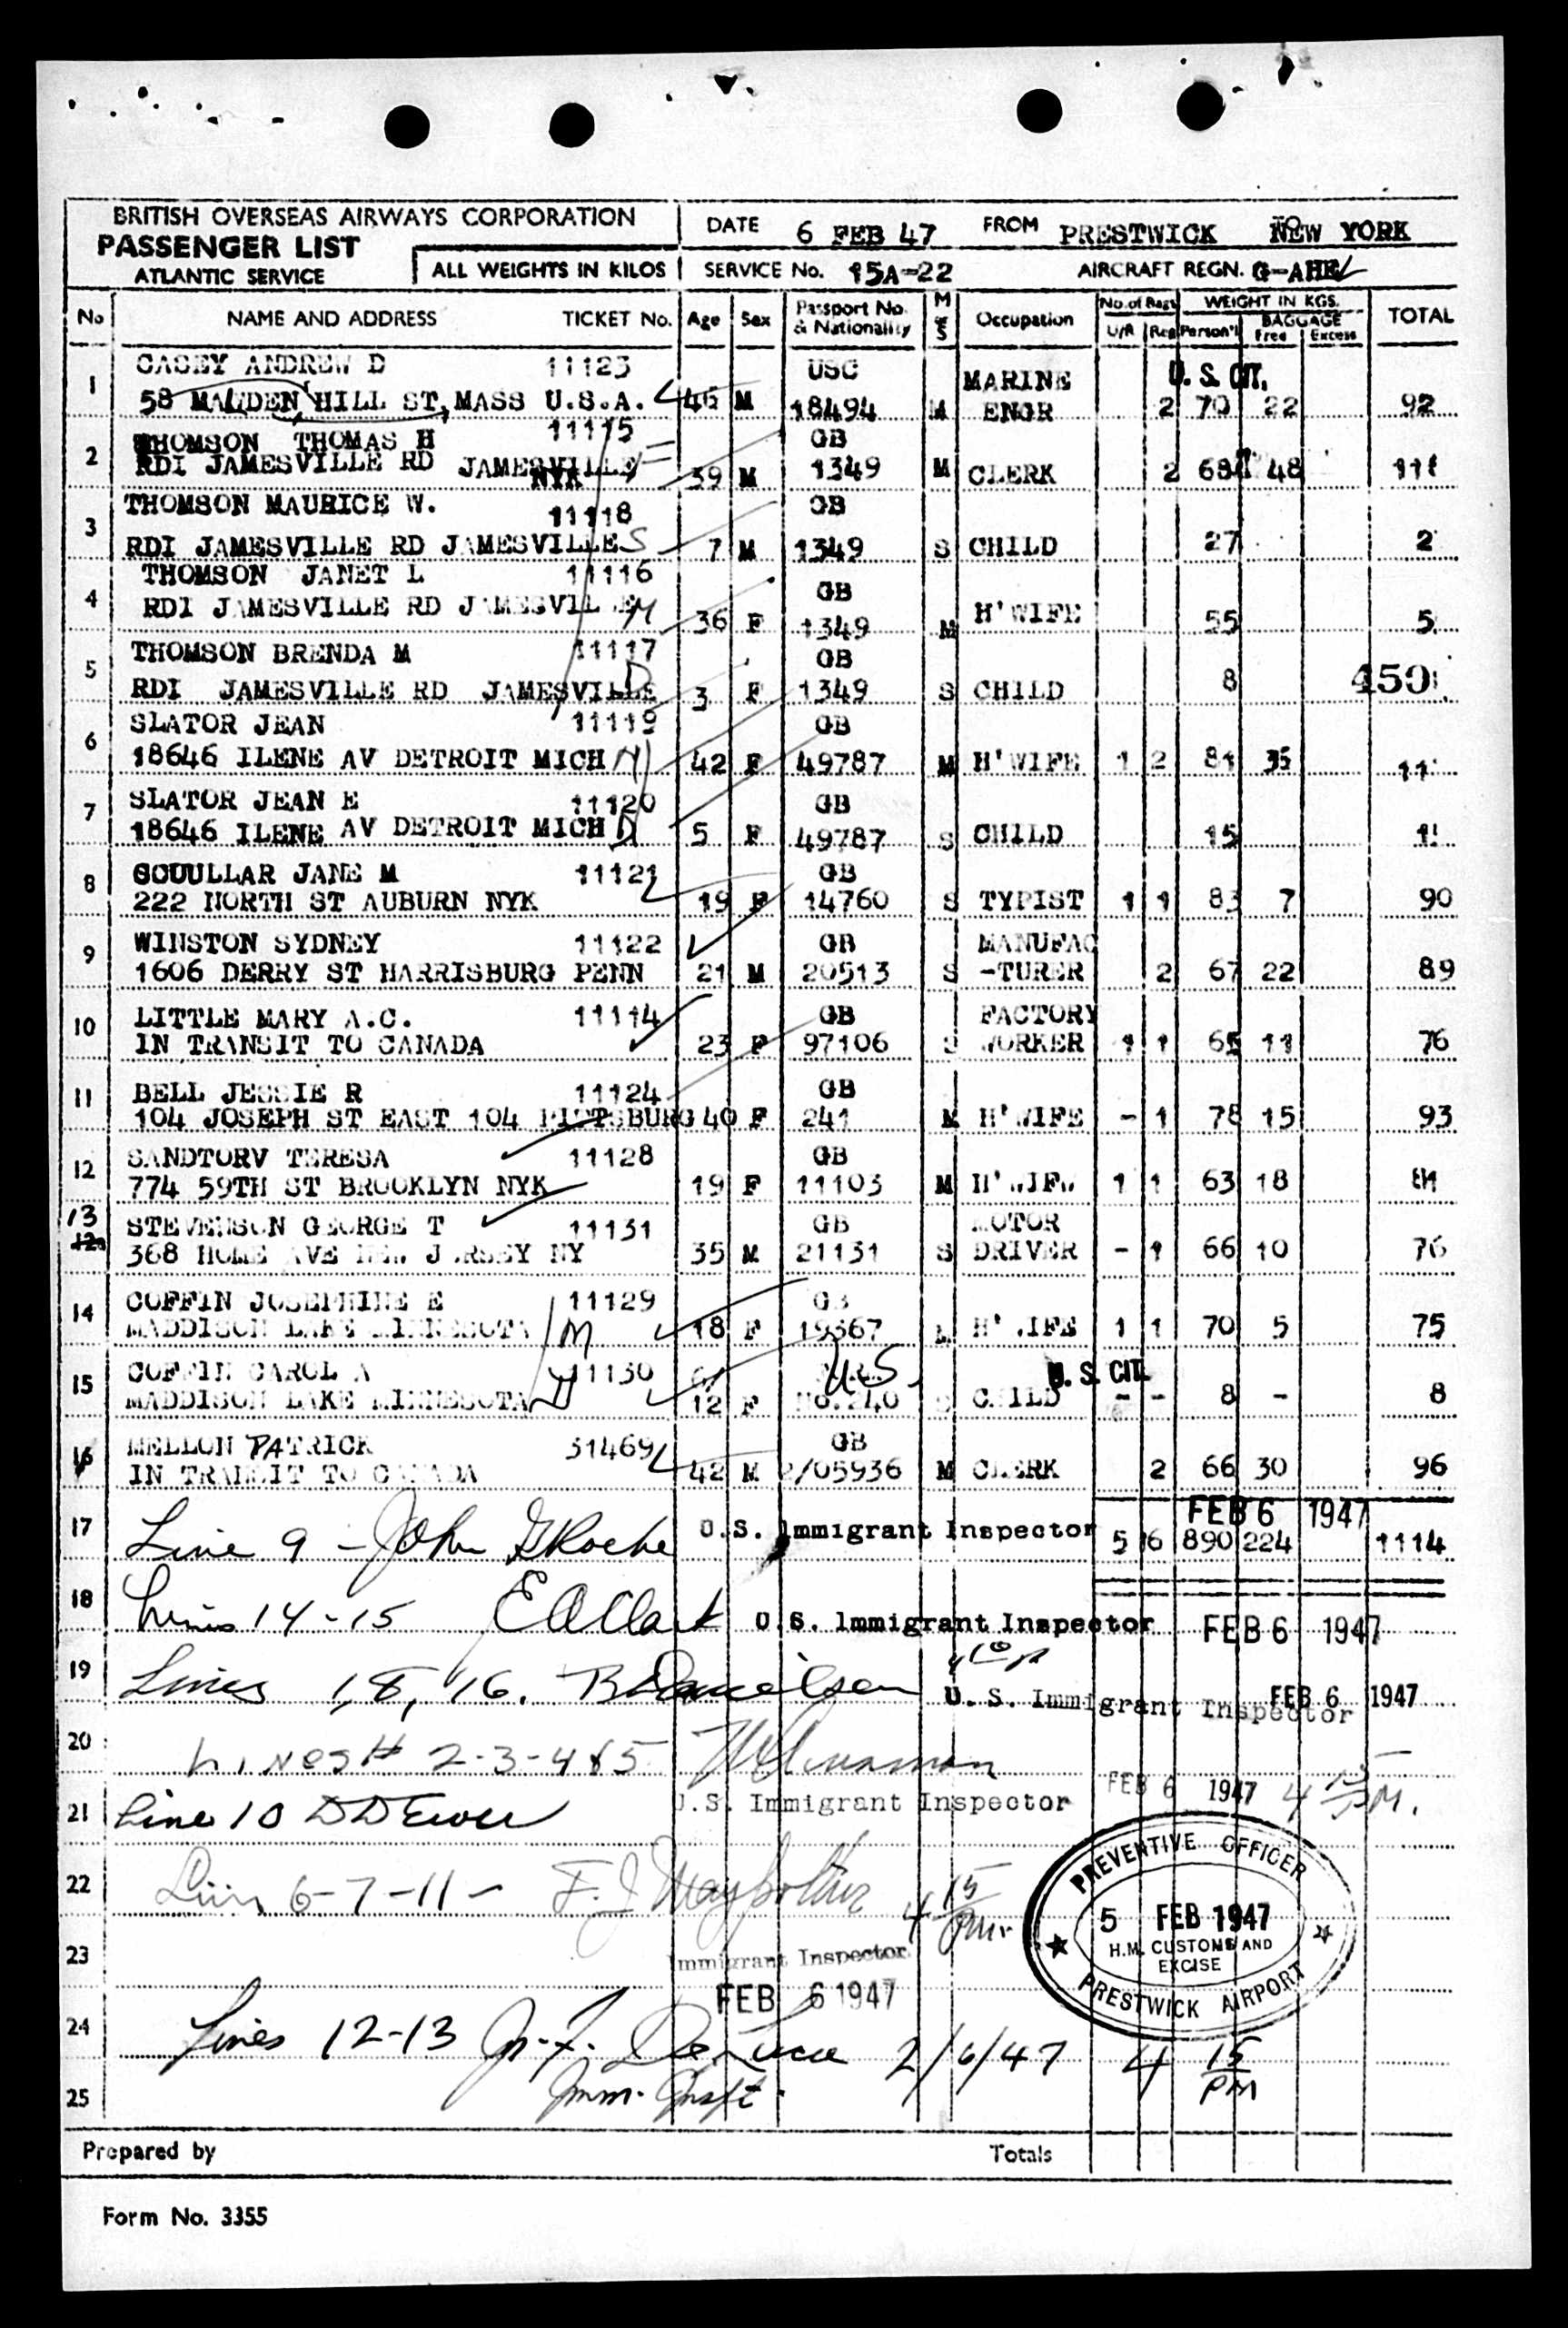 BRITISH OVERSEAS AIRWAYS CORPORATION
PASSENGER LIST
ATLANTIC SERVICE
ALL WEIGHTS IN KILOS
DATE 6 FEB 47 FROM PRESTWICK TO NEW YORK
SERVICE No. 15A-22 AIRCRAFT REGN. G-AHEL
No NAME AND ADDRESS TICKET No. Age Sex Passport No. & Nationality M S Occupation No. of Bags U/R Reg WEIGHT IN KGS. Person'l BAGGAGE Free Excess TOTAL
1 CASEY ANDREW D 11123 USC MARINE U.S. CIT.
58 MALDEN HILL ST, MASS U.S.A. 46 M 18494 M ENGR 2 70 22 92
2 THOMSON THOMAS H 11115 GB
RDI JAMESVILLE RD JAMESVILLE NYK 39 M 1349 M CLERK 2 48
3 THOMSON MAURICE W. 11118 GB
RDI JAMESVILLE RD JAMESVILLE S 7 M 1349 S CHILD 27 2
4 THOMSON JANET L 11116 GB
RDI JAMESVILLE RD JAMESVILLE M 36 F 1349 M H'WIFE 55 5
5 THOMSON BRENDA M 11117 GB
RDI JAMESVILLE RD JAMESVILLE D 3 F 1349 S CHILD 8 450
6 SLATOR JEAN 11119 GB
18646 ILENE AV DETROIT MICH M 42 F 49787 M H'WIFE 1 2 81 35 11
7 SLATOR JEAN E 11120 GB
18646 ILENE AV DETROIT MICH D 5 F 49787 S CHILD 15 1
8 SCOULLAR JANE M 11121 GB
222 NORTH ST AUBURN NYK 19 F 14760 S TYPIST 1 1 83 7 90
9 WINSTON SYDNEY 11122 GB MANUFAC
1606 DERRY ST HARRISBURG PENN 21 M 20513 S -TURER 2 67 22 89
10 LITTLE MARY A.C. 11114 GB FACTORY
IN TRANSIT TO CANADA 23 F 97106 S WORKER 1 1 65 11 76
11 BELL JESSIE R 11124 GB
104 JOSEPH ST EAST 104 PITTSBURG 40 F 241 M H'WIFE - 1 78 15 93
12 SANDTORV TERESA 11128 GB
774 59TH ST BROOKLYN NYK 19 F 11103 M H'WIFE 1 1 63 18 81
13 12a STEVENSON GEORGE T 11131 GB MOTOR
368 HOME AVE NEW JERSEY NY 35 M 21131 S DRIVER - 1 66 10 76
14 COFFIN JOSEPHINE E 11129 GB
MADDISON LAKE MINNESOTA M 18 F 19367 M H'WIFE 1 1 70 5 75
15 COFFIN CAROL A 11130 U.S. U.S. CIT.
MADDISON LAKE MINNESOTA D 12 F No.240 S CHILD - - 8 - 8
16 MELLON PATRICK 31469 GB
IN TRANSIT TO CANADA 42 M 2/05936 M CLERK 2 66 30 96
FEB 6 1947
17 Line 9 - John G Roche U.S. Immigrant Inspector 5 16 890 224 1114
18 Lines 14-15 E A Clark U.S. Immigrant Inspector FEB 6 1947
19 Lines 1, 8, 16. B Danielsen U.S. Immigrant Inspector FEB 6 1947
20 Lines # 2-3-4 & 5
U.S. Immigrant Inspector FEB 6 1947 4 15 P.M.
21 Line 10
22 Line 6-7-11- F. J. 4 15 pm.
23 Immigrant Inspector
FEB 6 1947
PREVENTIVE OFFICER
5 FEB 1947
H.M. CUSTOMS AND
EXCISE
PRESTWICK AIRPORT
24 Lines 12-13 2/6/47 4 15 PM
25 Imm. Inspt.
Prepared by Totals
Form No. 3355